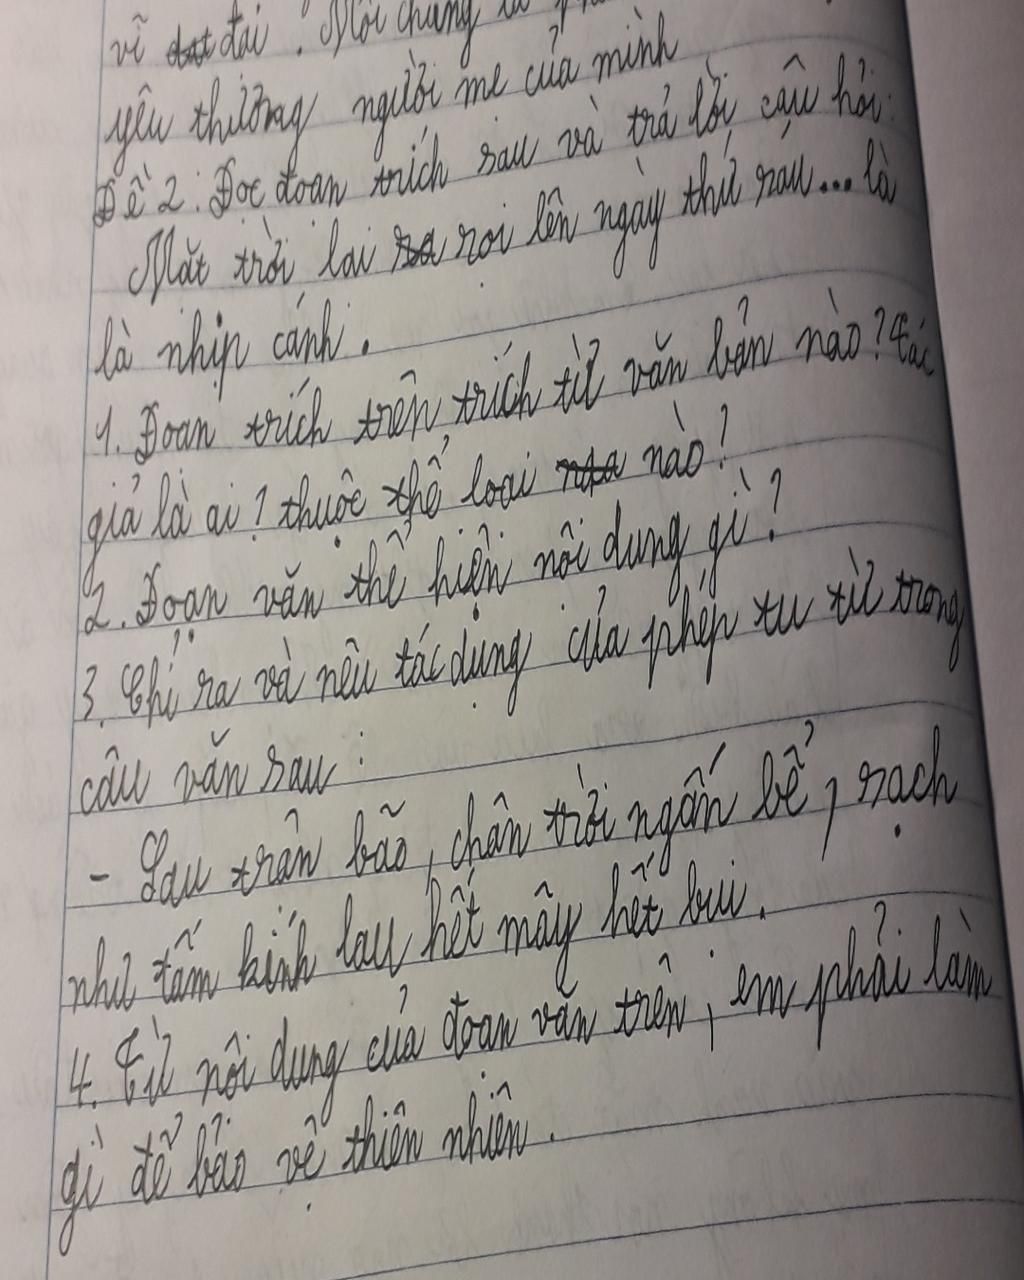 vĩ đại. Nói chung là
yêu thương người mẹ của mình
Đề 2: Đọc đoạn trích sau và trả lời câu hỏi:
Mặt trời lại rọi lên ngày thứ sáu... là
là nhịp cánh.
1. Đoạn trích trên trích từ văn bản nào? Tác
giả là ai? thuộc thể loại nào?
2. Đoạn văn thể hiện nội dung gì?
3. Chỉ ra và nêu tác dụng của phép tu từ trong
câu văn sau:
- Sau trận bão, chân trời ngấn bể, sạch
như tấm kính lau hết mây hết bụi.
4. Từ nội dung của đoạn văn trên, em phải làm
gì để bảo vệ thiên nhiên.